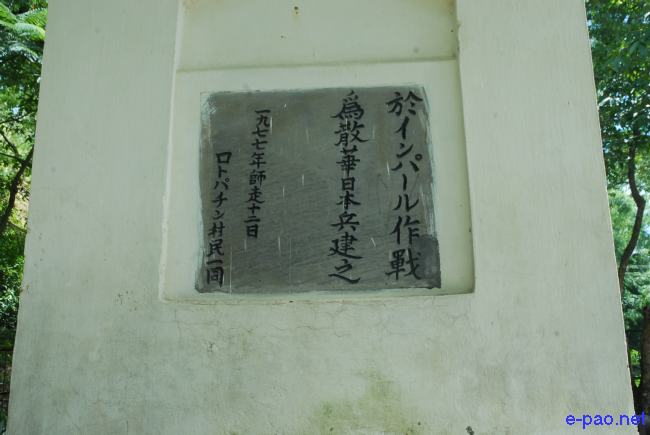 於インパール作戦
為散華日本兵建之
一九七七年師走十二日
ロトパチン村民一同
e-pao.net